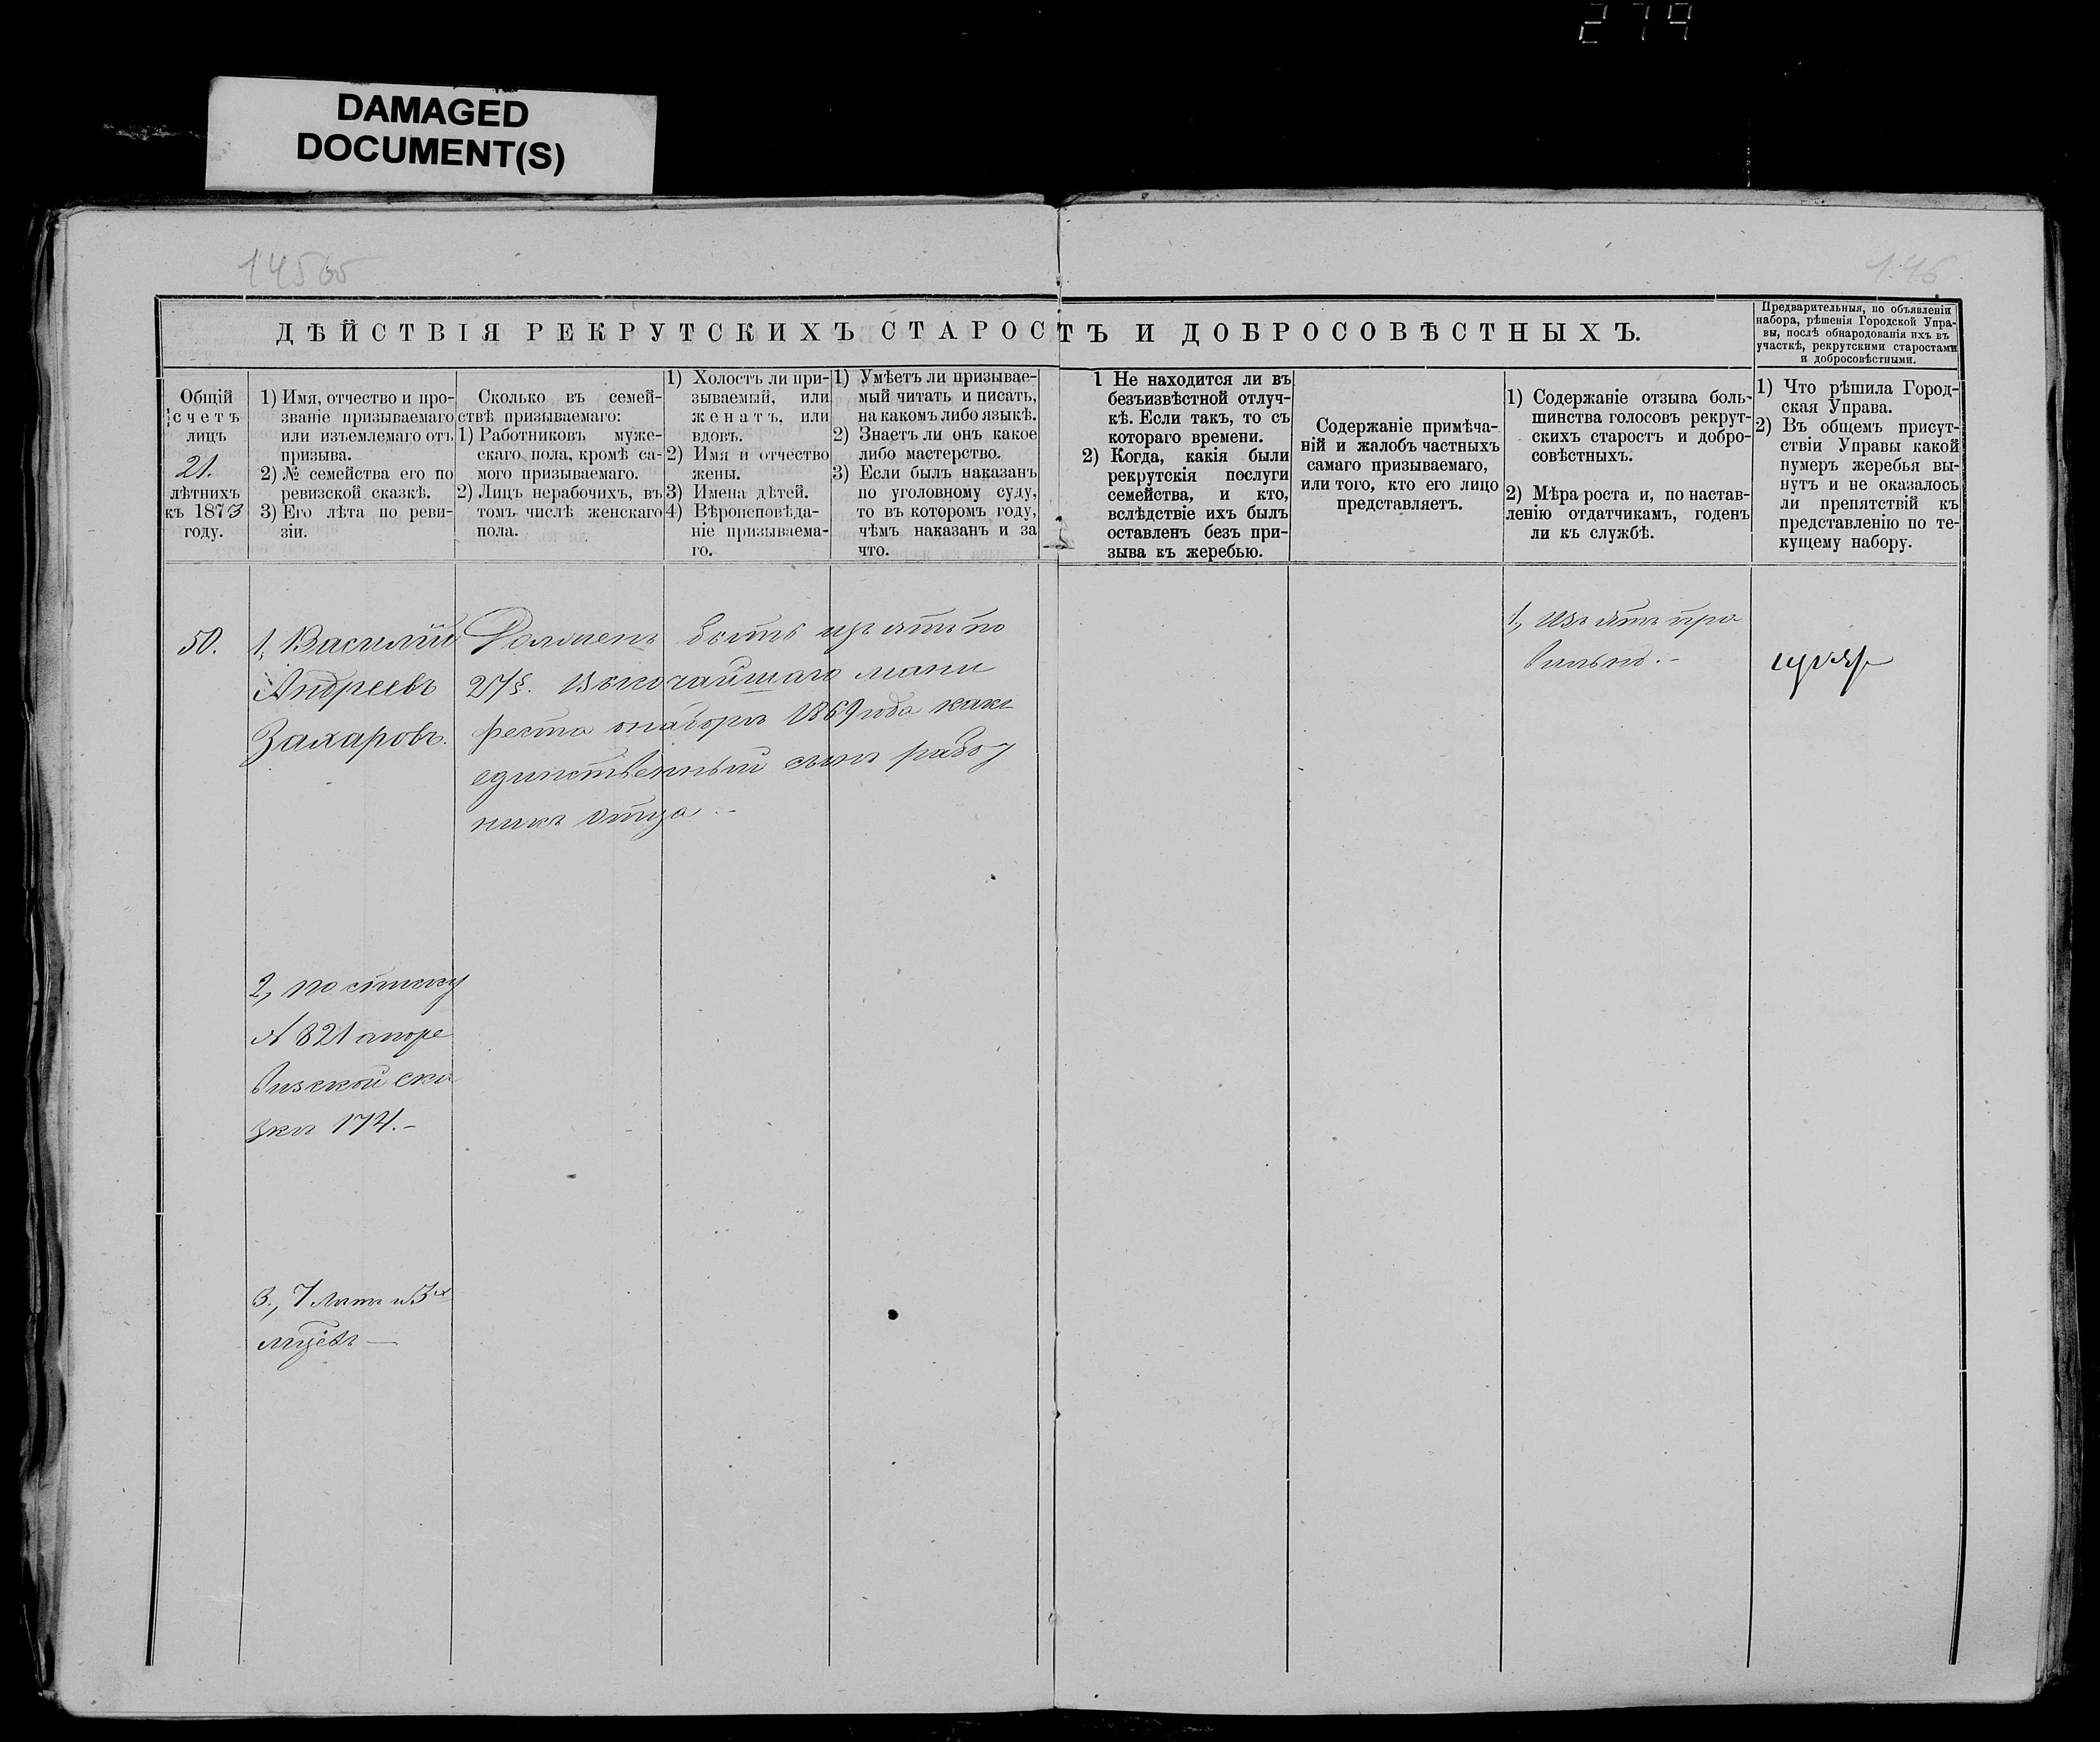 279
DAMAGED
DOCUMENT(S)
145об
146
ДѢЙСТВІЯ РЕКРУТСКИХЪ СТАРОСТЪ И ДОБРОСОВѢСТНЫХЪ.
Предварительныя, по объявленіи
набора, рѣшенія Городской Упра-
вы, послѣ обнародованія ихъ въ
участкѣ, рекрутскими старостами
и добросовѣстными.
Общій
счетъ
лицъ
21.
лѣтнихъ
къ 1873
году.
1) Имя, отчество и про-
званіе призываемаго
или изъемлемаго отъ
призыва.
2) № семейства его по
ревизской сказкѣ.
3) Его лѣта по реви-
зіи.
Сколько въ семей-
ствѣ призываемаго:
1) Работниковъ муже-
скаго пола, кромѣ са-
мого призываемаго.
2) Лицъ нерабочихъ, въ
томъ числѣ женскаго
пола.
1) Холостъ ли при-
зываемый, или
женатъ, или
вдовъ.
2) Имя и отчество
жены.
3) Имена дѣтей.
4) Вѣроисповѣда-
ніе призываема-
го.
1) Умѣетъ ли призывае-
мый читать и писать,
на какомъ либо языкѣ.
2) Знаетъ ли онъ какое
либо мастерство.
3) Если былъ наказанъ
по уголовному суду,
то въ которомъ году,
чѣмъ наказанъ и за
что.
1 Не находится ли въ
безъизвѣстной отлуч-
кѣ. Если такъ, то съ
котораго времени.
2) Когда, какія были
рекрутскія послуги
семейства, и кто,
вслѣдствіе ихъ былъ
оставленъ безъ при-
зыва къ жеребью.
Содержаніе примѣча-
ній и жалобъ частныхъ
самаго призываемаго,
или того, кто его лицо
представляетъ.
1) Содержаніе отзыва боль-
шинства голосовъ рекрут-
скихъ старостъ и добро-
совѣстныхъ.
2) Мѣра роста и, по настав-
ленію отдатчикамъ, годенъ
ли къ службѣ.
1) Что рѣшила Город-
ская Управа.
2) Въ общемъ присут-
ствіи Управы какой
нумеръ жеребья вы-
нутъ и не оказалось
ли препятствій къ
представленію по те-
кущему набору.
50.
1, Василій
Андреевъ
Захаровъ.
Долженъ быть изъятъ по
27 §. Высочайшаго мани
феста о наборѣ 1869 года какъ
единственный сынъ работ
никъ отца. –
1, Изъятъ пра
вильно. –
2, по списку
№ 821 а по ре
визской ска
зкѣ 174. –
3., 7 лѣтъ и 3х
мцевъ —